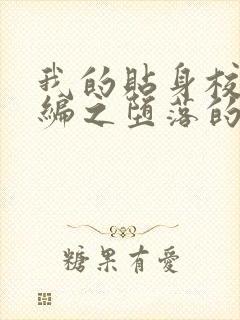 我的貼身校
編之堕落的
糖果有愛